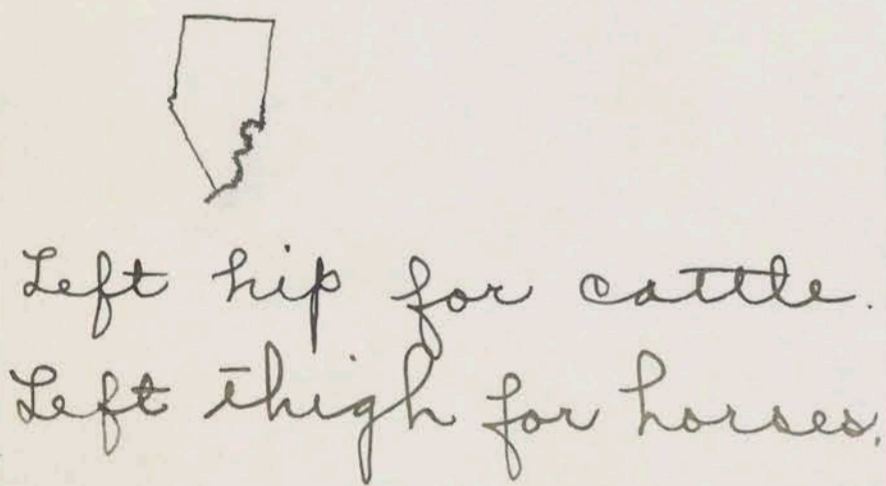 Left hip for cattle.
Left thigh for horses.